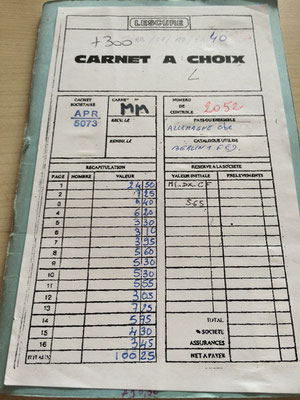 LESCURE
+300
40
CARNET A CHOIX
L
CACHET SOCIETAIRE
CARNET
MM
NUMERO DE CONTROLE
2052
APR 5073
RECU, LE
PAYS OU ENSEMBLE
ALLEMAGNE
RENDU, LE
CATALOGUE UTILISE
BERLIN
RECAPITULATION
RESERVE A LA SOCIETE
PAGE NOMBRE VALEUR
VALEUR INITIALE PRELEVEMENTS
1 24 50
2 25
3 40 565
4 6 20
5 30
6 3 10
7 3 95
8 5 60
9 5 30
10 5 30
11 5 55
12 3 05
13 7 25
14 5 75 TOTAL
15 4 30 % SOCIETE
16 3 45 ASSURANCES
100 25 NET A PAYER